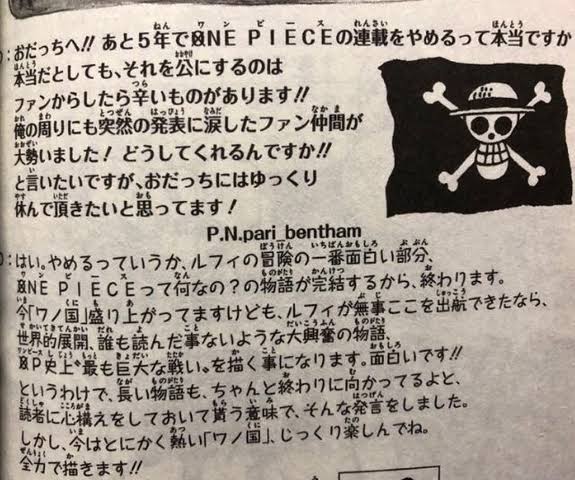 D：おだっちへ!! あと5年でONE PIECEの連載をやめるって本当ですか
本当だとしても、それを公にするのは
ファンからしたら辛いものがあります!!
俺の周りにも突然の発表に涙したファン仲間が
大勢いました！ どうしてくれるんですか!!
と言いたいですが、おだっちにはゆっくり
休んで頂きたいと思ってます！
P.N.pari_bentham
O：はい。やめるっていうか、ルフィの冒険の一番面白い部分、
ONE PIECEって何なの？の物語が完結するから、終わります。
今「ワノ国」盛り上がってますけども、ルフィが無事ここを出航できたなら、
世界的展開、誰も読んだ事ないような大興奮の物語、
OP史上〝最も巨大な戦い〟を描く事になります。面白いです!!
というわけで、長い物語も、ちゃんと終わりに向かってるよと、
読者に心構えをしておいて貰う意味で、そんな発言をしました。
しかし、今はとにかく熱い「ワノ国」、じっくり楽しんでね。
全力で描きます!!